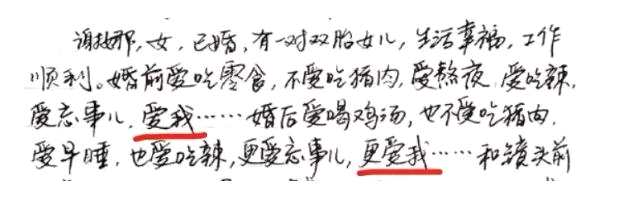 谢娜，女，已婚，有一对双胎女儿，生活幸福，工作
顺利。婚前爱吃零食，不爱吃猪肉，爱熬夜，爱吃辣，
爱忘事儿，爱我……婚后爱喝鸡汤，也不爱吃猪肉，
爱早睡，也爱吃辣，更爱忘事儿，更爱我……和镜头前